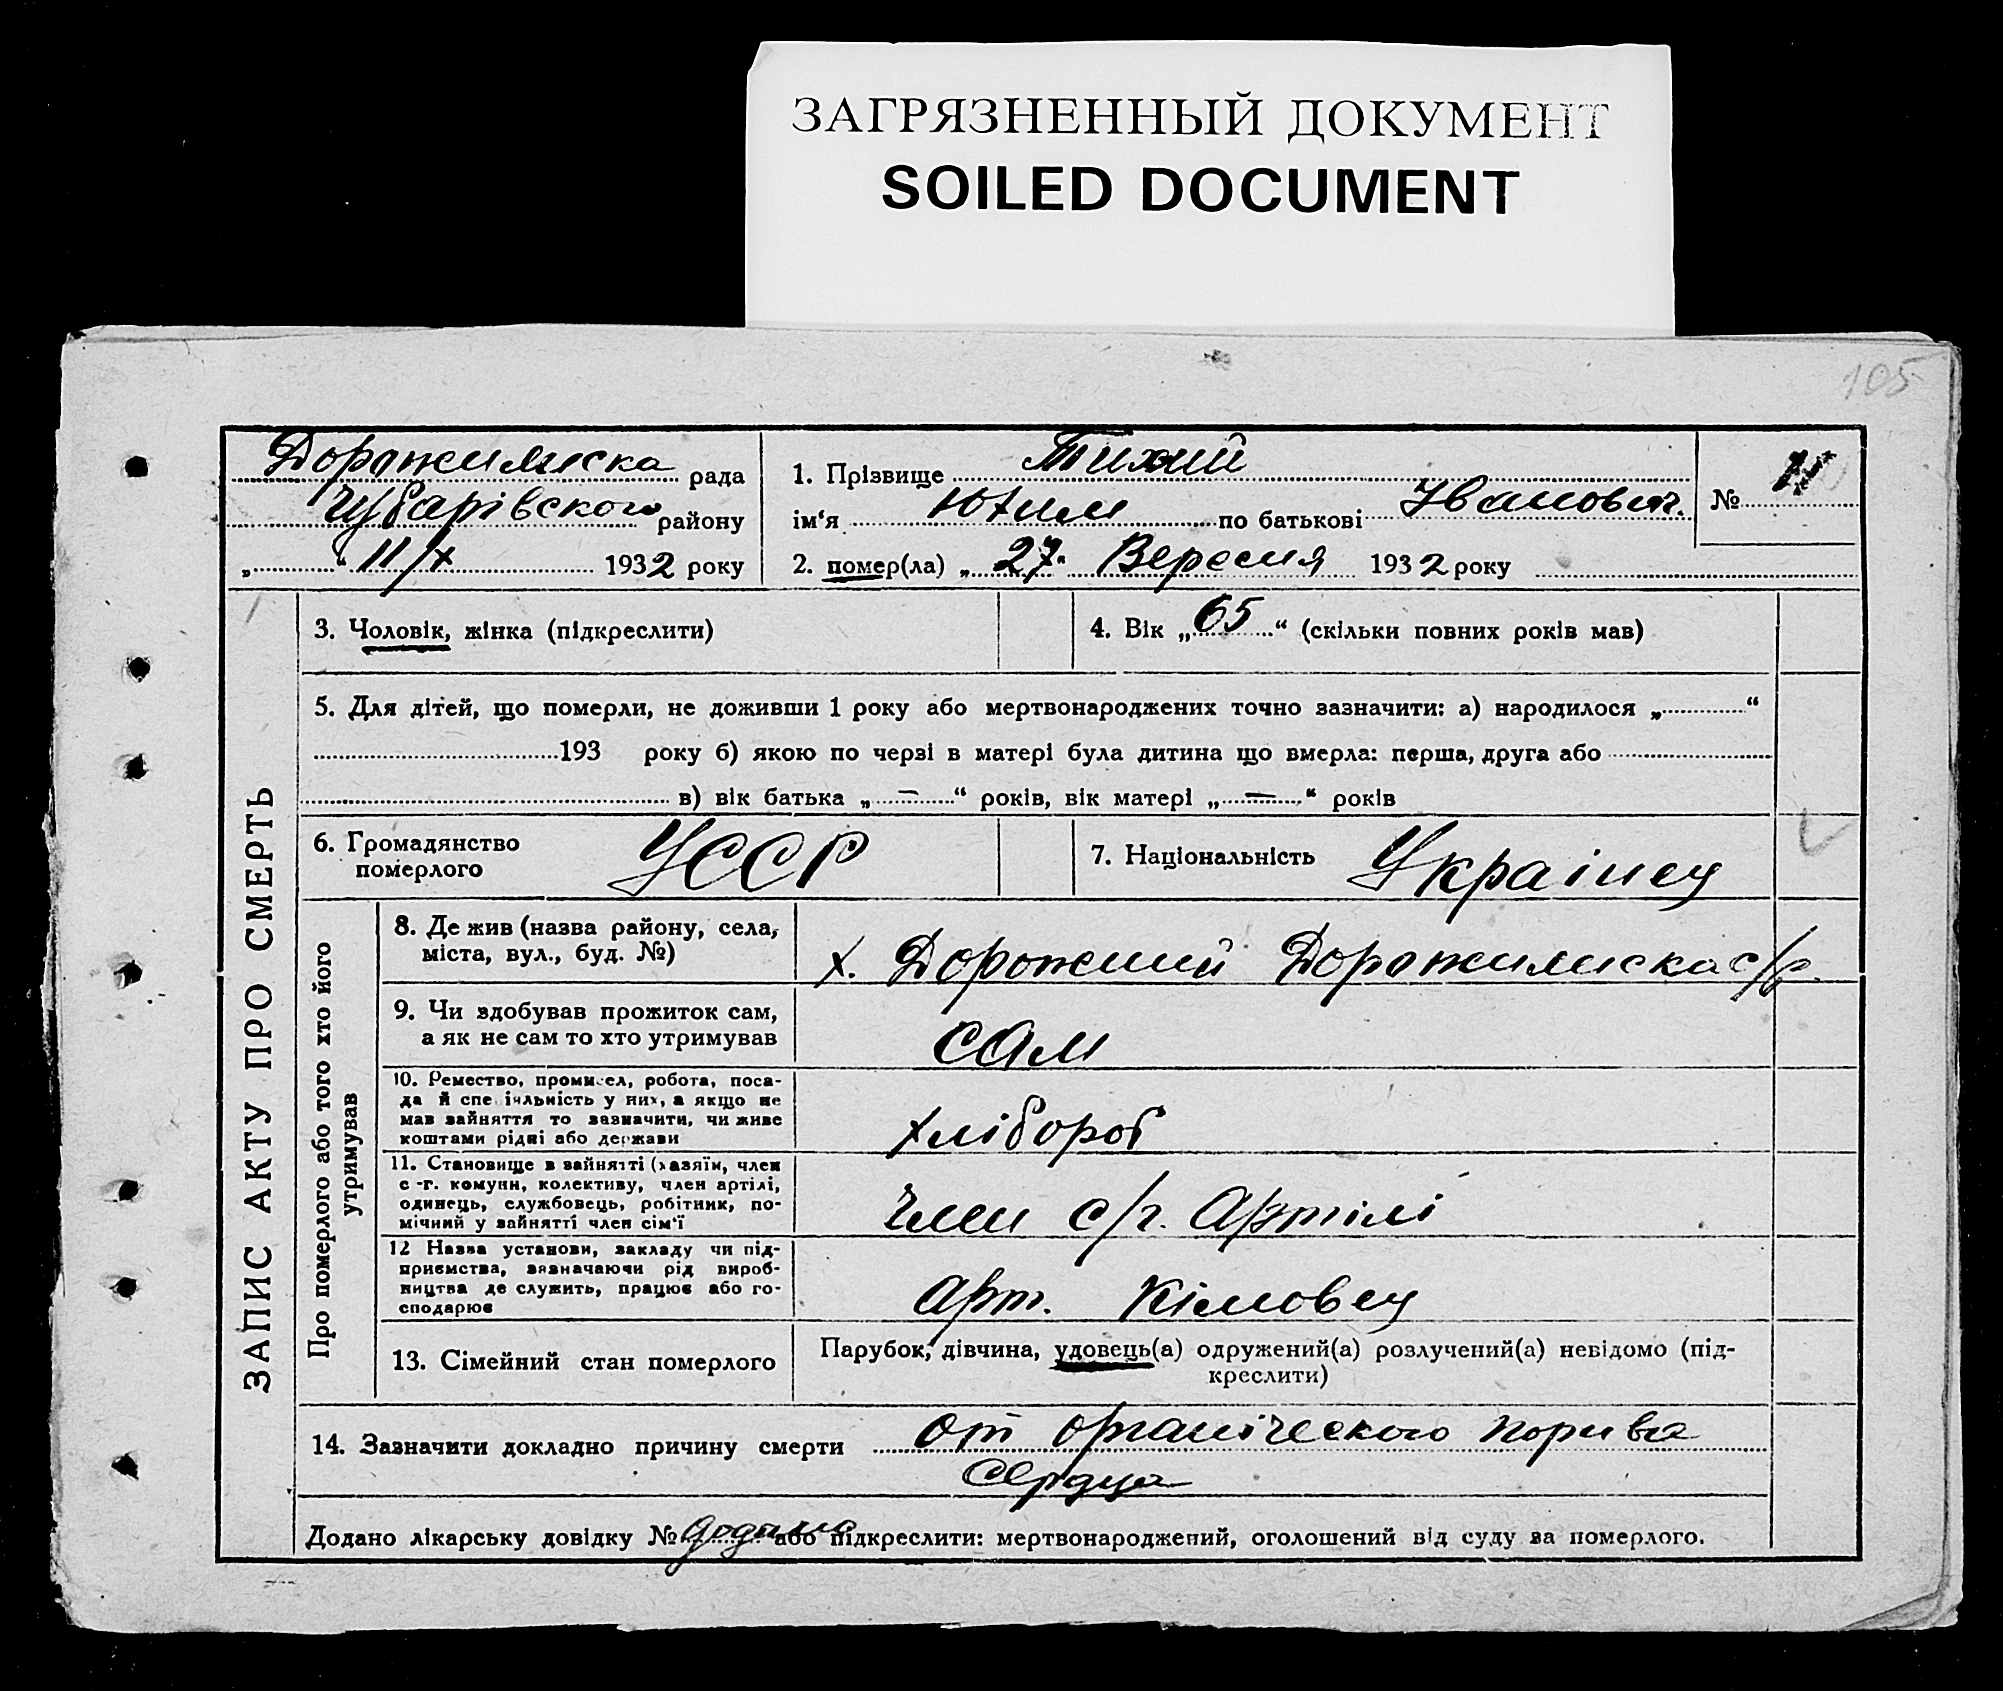 ЗАГРЯЗНЕННЫЙ ДОКУМЕНТ
SOILED DOCUMENT
105
Дорожилиска рада
Чубарівского району
„ “ 11/X 1932 року
1. Прізвище Тихий
ім‘я Юхим по батькові Іванович.
№
2. помер(ла) „27“ Вересня 1932 року
ЗАПИС АКТУ ПРО СМЕРТЬ
3. Чоловік, жінка (підкреслити)
4. Вік „65“ (скільки повних років мав)
5. Для дітей, що померли, не доживши 1 року або мертвонароджених точно зазначити: а) народилося „ “
193 року б) якою по черзі в матері була дитина що вмерла: перша, друга або
в) вік батька „ – “ років, вік матері „ – “ років
6. Громадянство
померлого
УССР
7. Національність Украінец
Про померлого або того хто його
утримував
8. Де жив (назва району, села,
міста, вул., буд. №)
х. Дорожний Дорожилиска с/р.
9. Чи здобував прожиток сам,
а як не сам то хто утримував
сам
10. Ремество, промисел, робота, поса-
да й спеціяльність у них, а якщо не
мав зайняття то зазначити, чи живе
коштами рідні або держави
хлібороб
11. Становище в зайнятті (хазяїн, член
с-г. комуни, колективу, член артілі,
одинець, службовець, робітник, по-
мічний у зайнятті член сім‘ї
член с/г. Артілі
12 Назва установи, закладу чи під-
приємства, зазначаючи рід вироб-
ництва де служить, працює або го-
сподарює
Арт. Кімовец
13. Сімейний стан померлого
Парубок, дівчина, удовець(а) одружений(а) розлучений(а) невідомо (під-
креслити)
14. Зазначити докладно причину смерти от органіческого порива
Сердца
Додано лікарську довідку № додано або підкреслити: мертвонароджений, оголошений від суду за померлого.